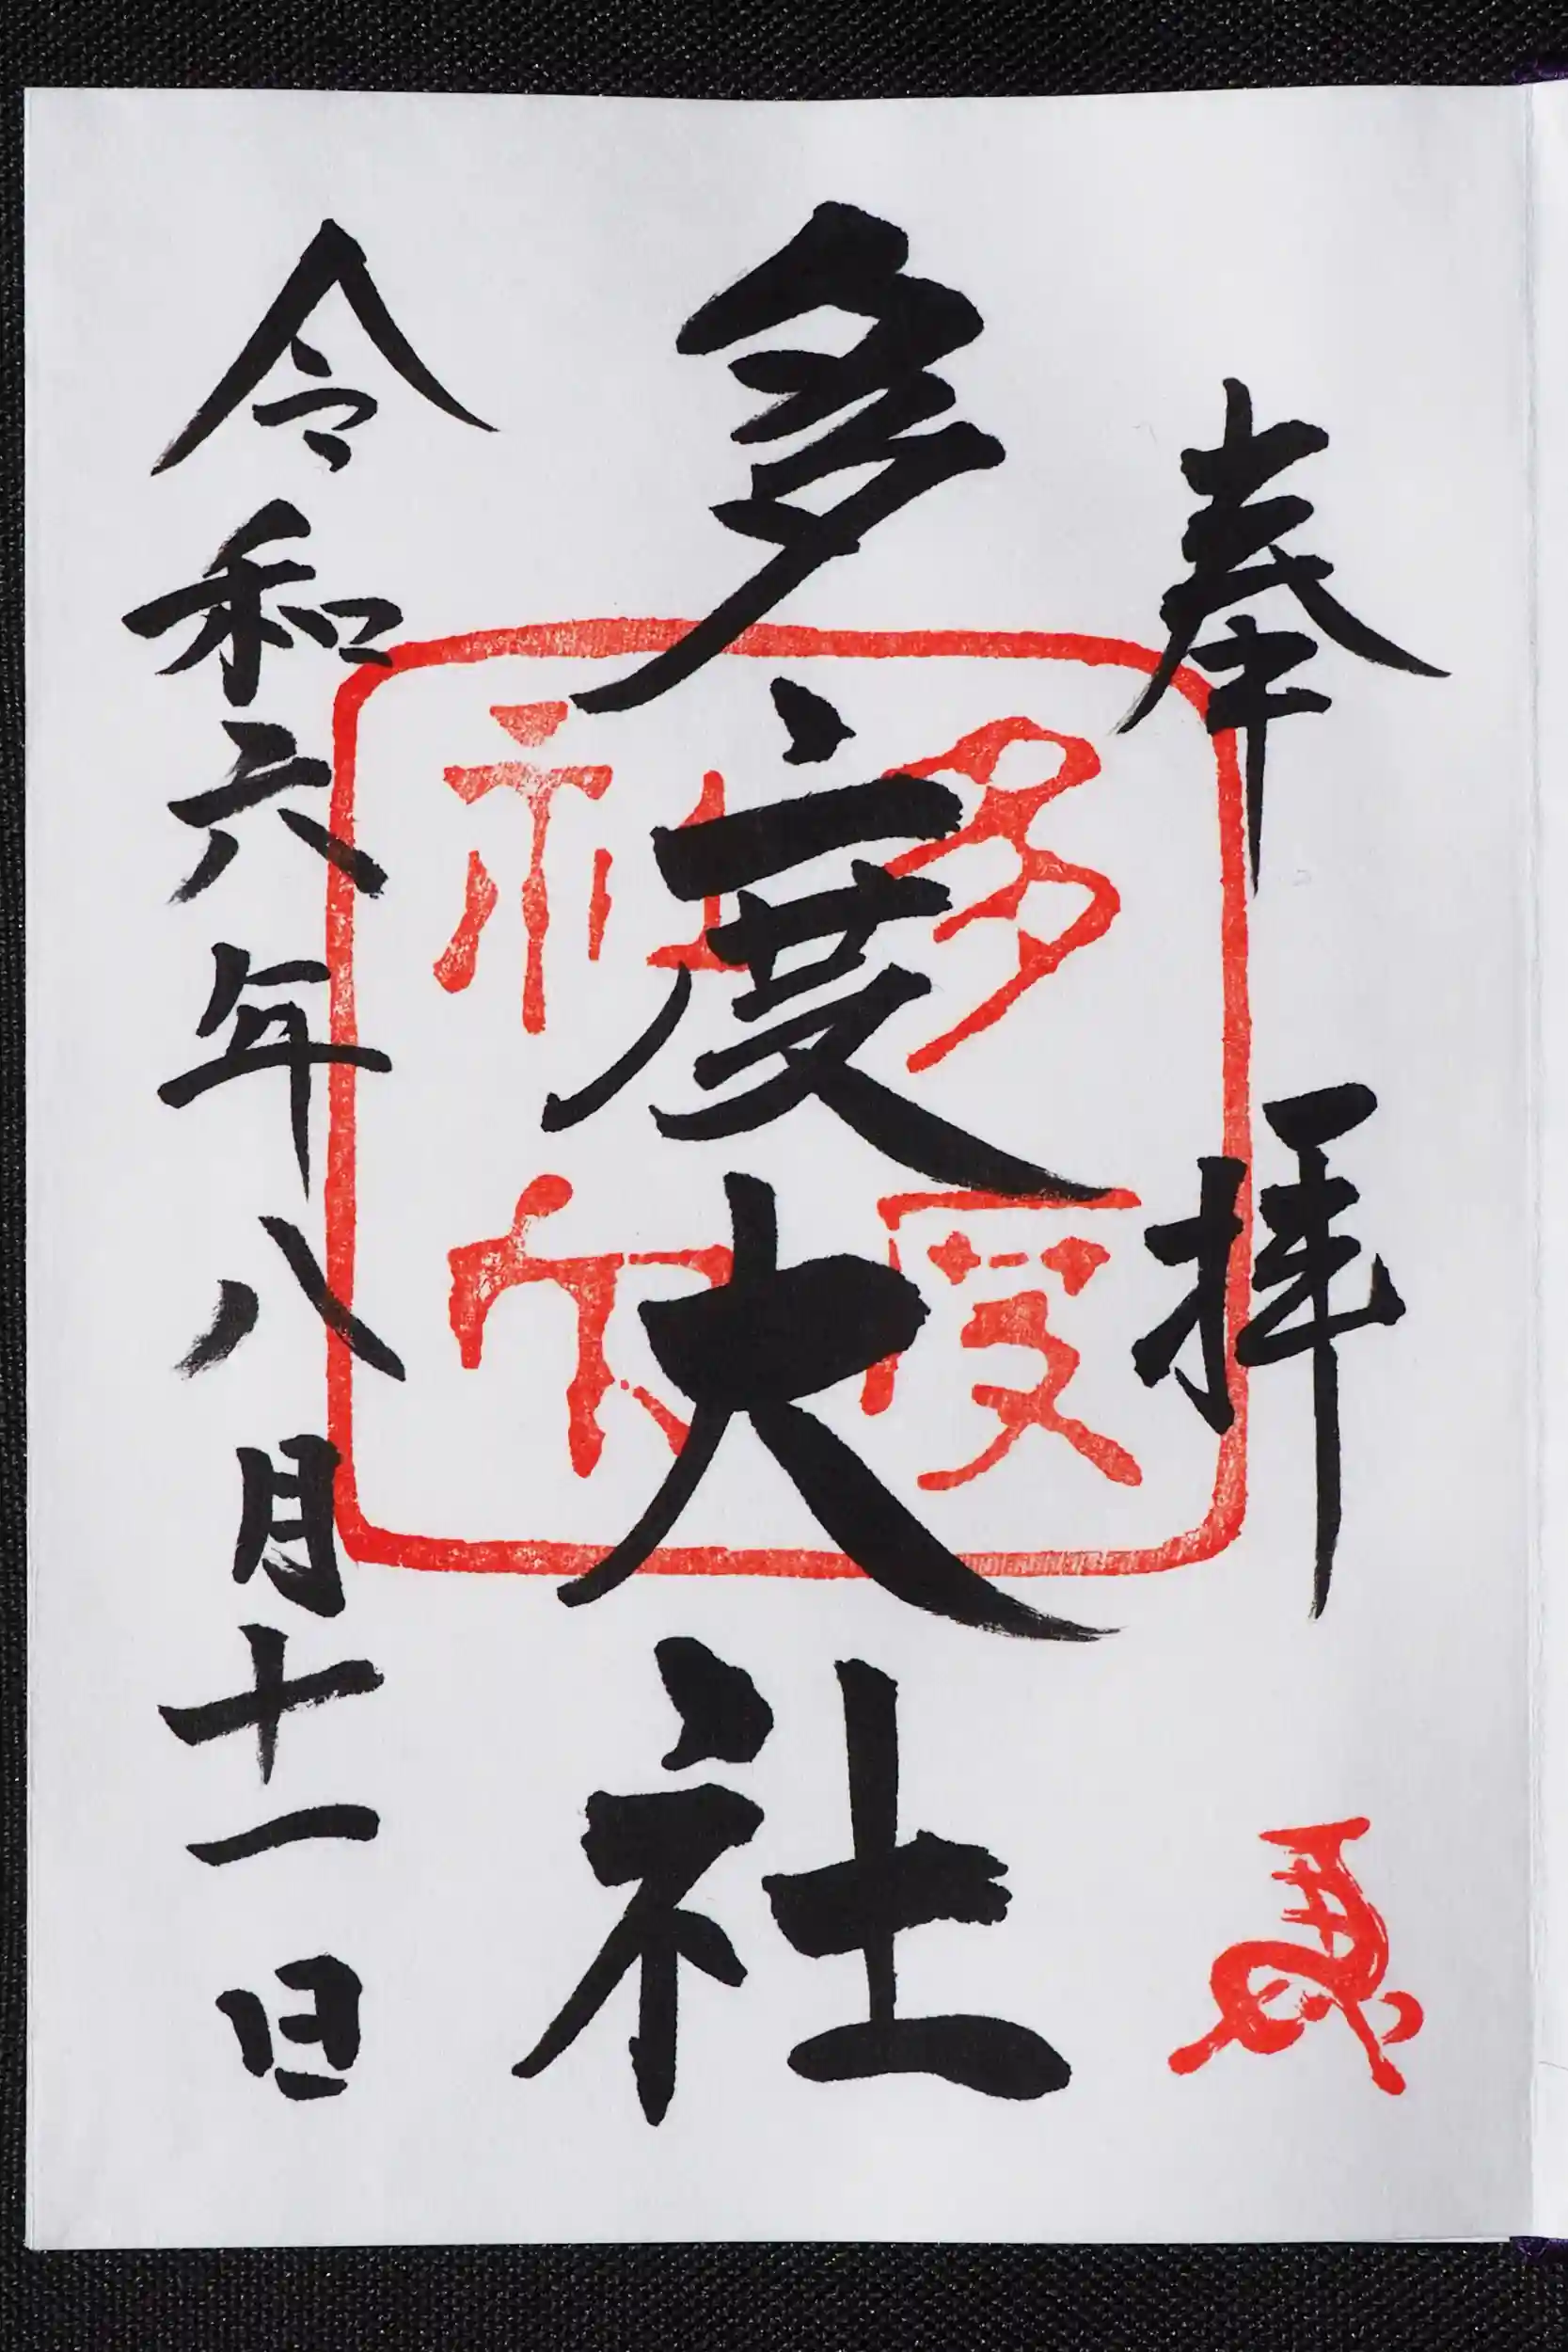 奉拝
多度大社
多度
社印
令和六年八月十一日